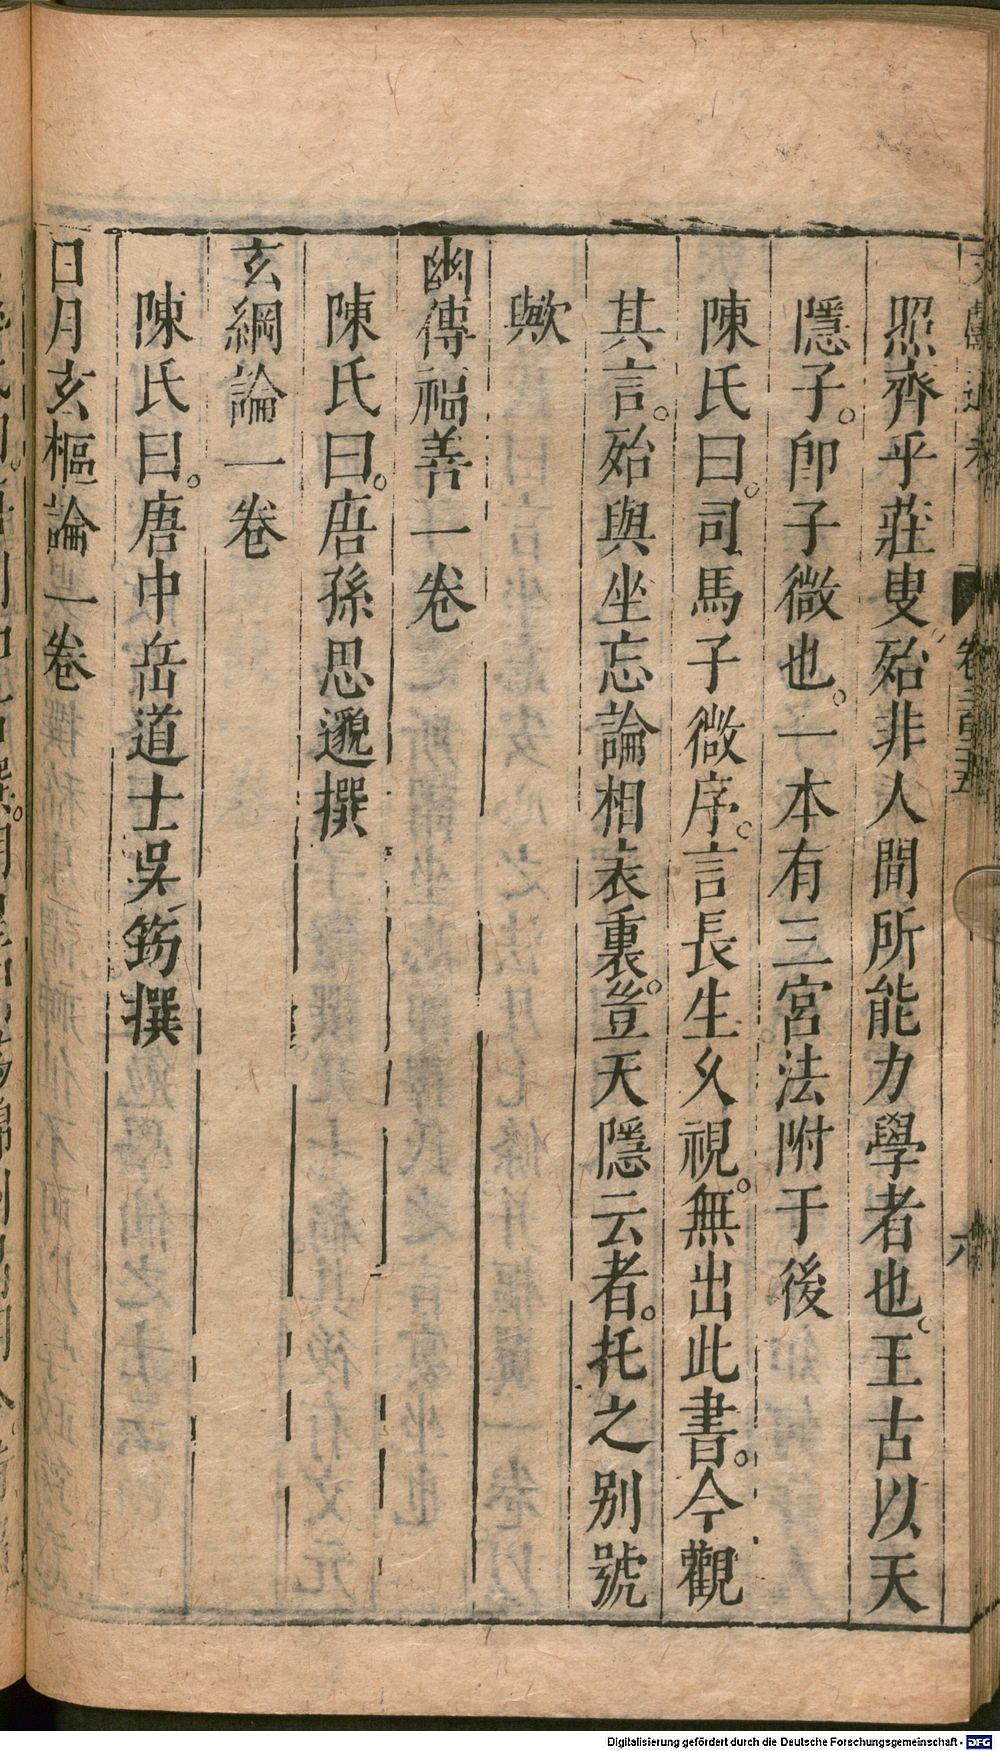 照齊乎莊叟殆非人間所能力學者也。王古以天
隱子。卽子微也。一本有三宮法附于後
陳氏曰。司馬子微序。言長生久視。無出此書。今觀
其言。殆與坐忘論相表裏。豈天隱云者。托之別號
歟
幽傳福善一卷
陳氏曰。唐孫思邈撰
玄綱論一卷
陳氏曰。唐中岳道士吳筠撰
日月玄樞論一卷
Digitalisierung gefördert durch die Deutsche Forschungsgemeinschaft - DFG